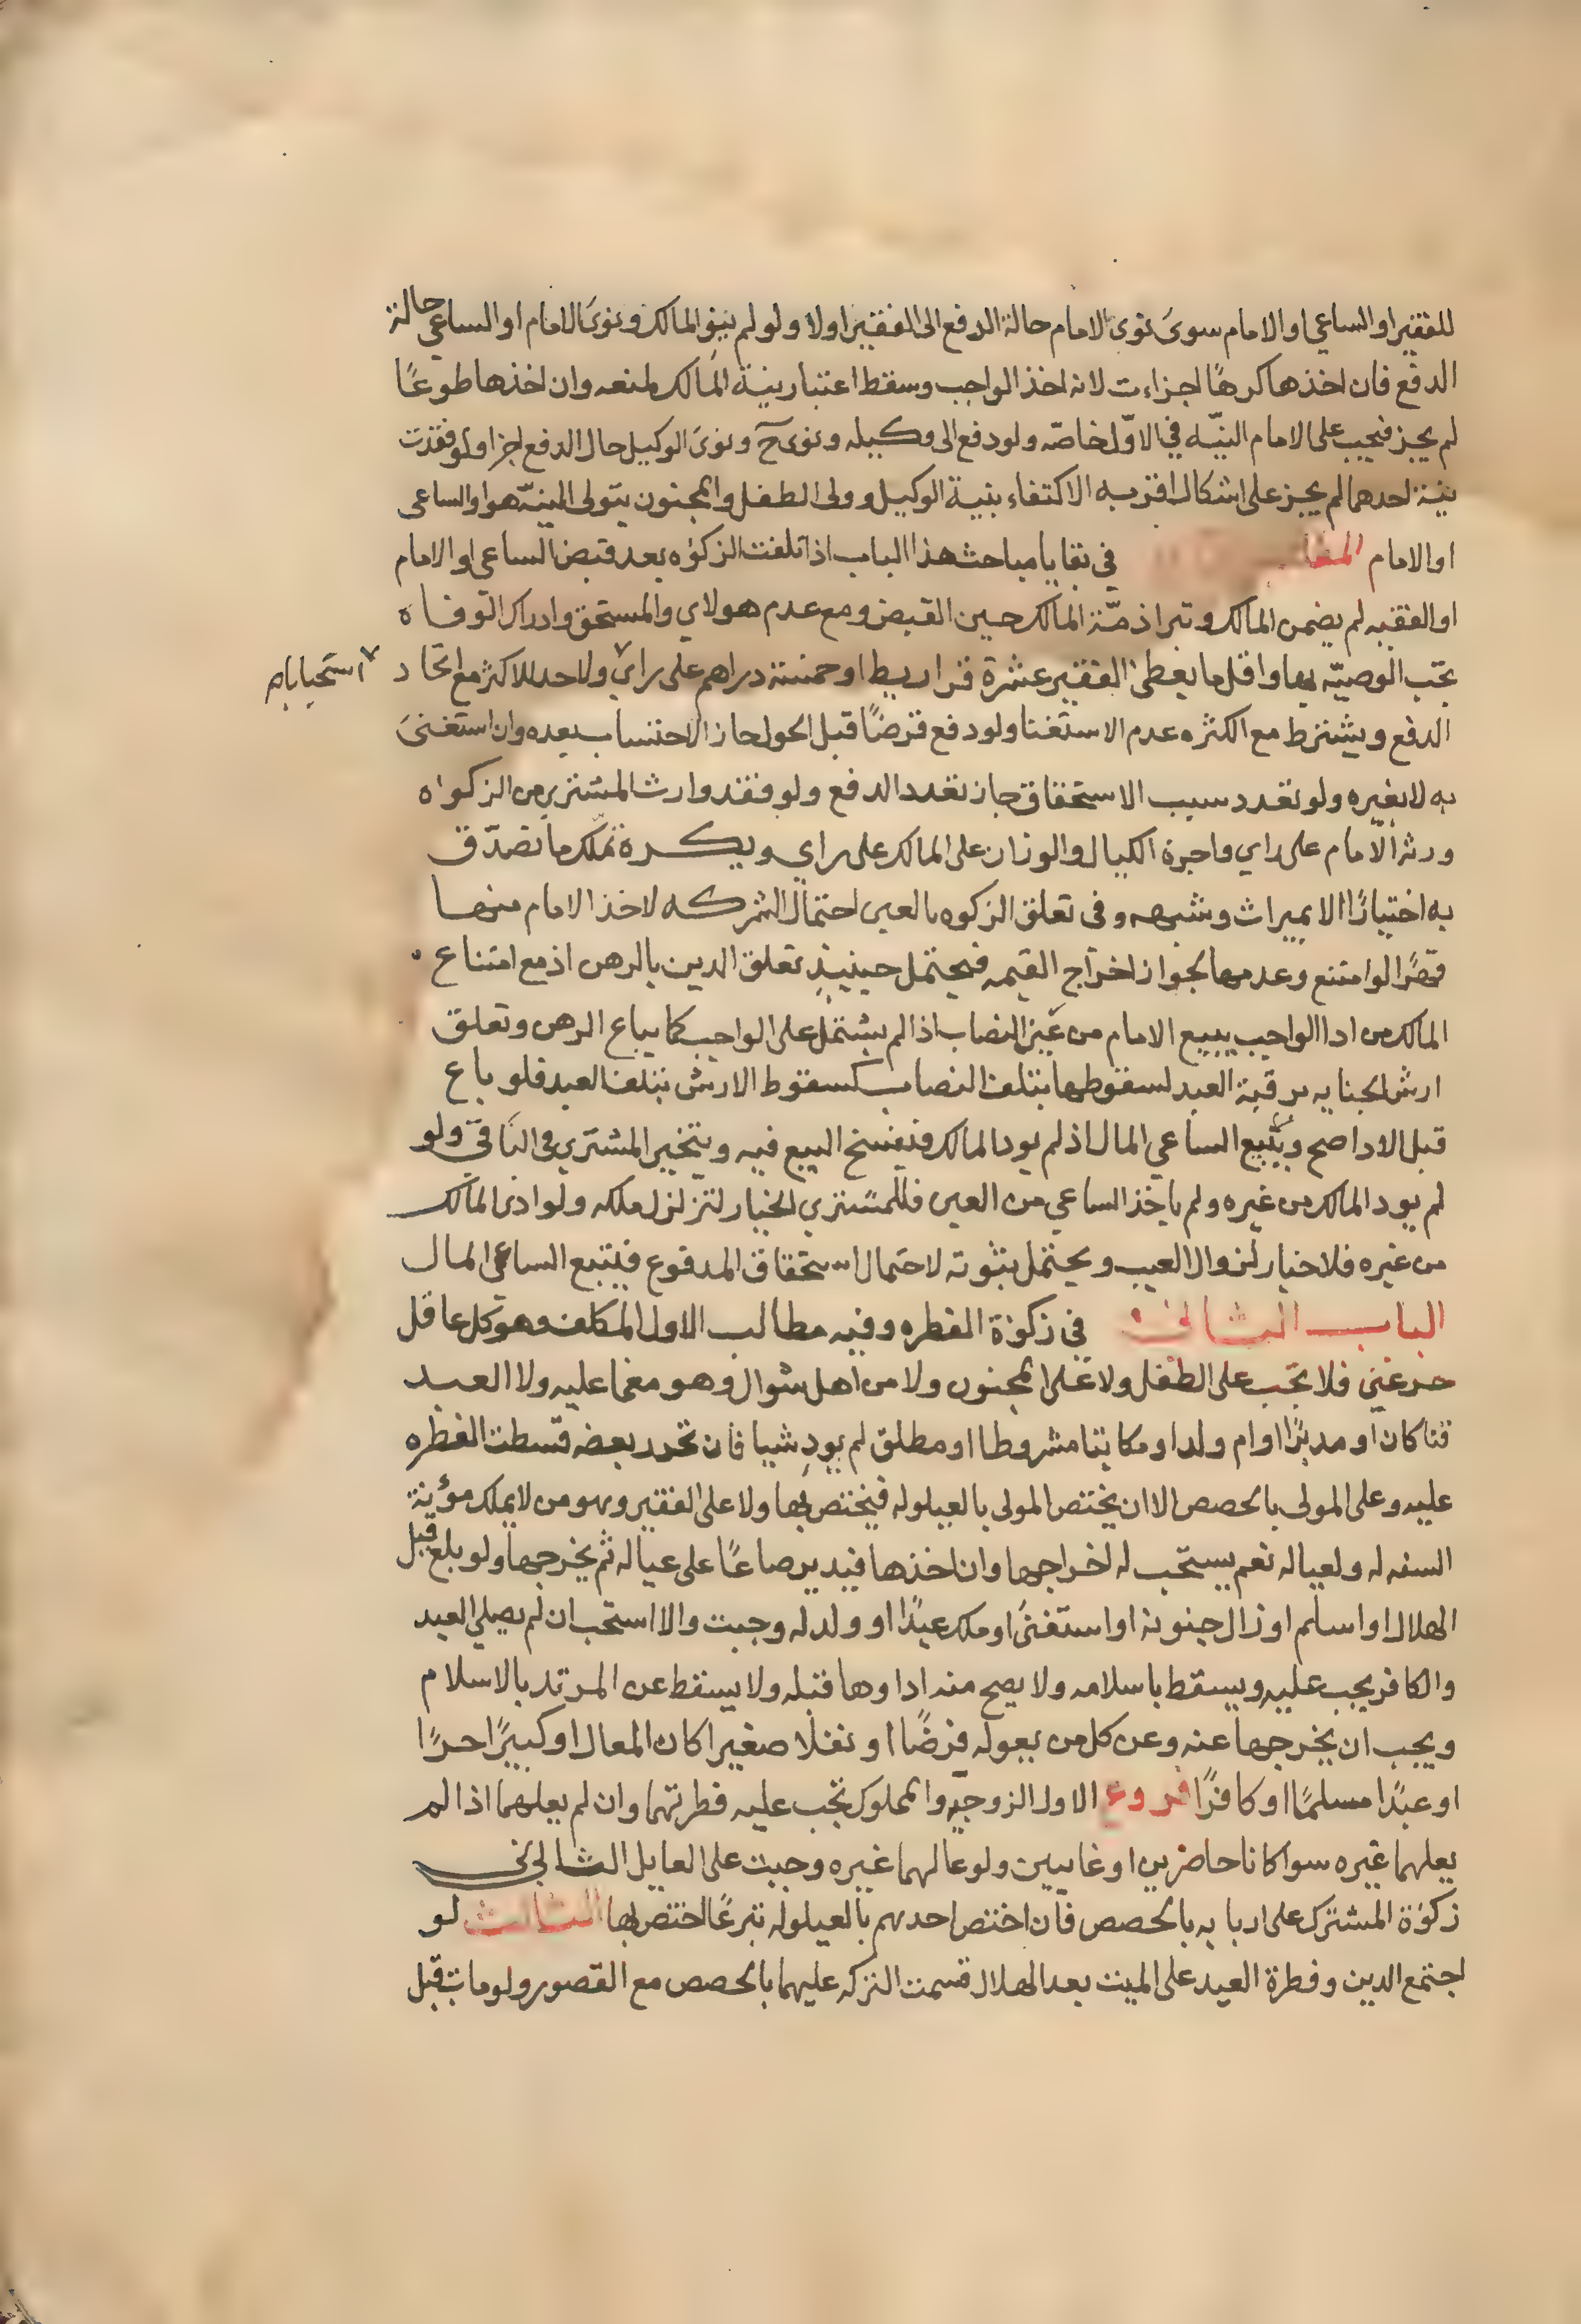 للفقير او الساعي او الامام سوىَ نوى الامام حالة الدفع الى الفقير اولا ولو لم ينوِ المالك ونوىَ الامام او الساعي حالة
الدفع فان اخذها كرهًا اجزاءت لانه اخذ الواجب وسقط اعتبار نية المالك لمنعه وان اخذها طوعًا
لم يجز فيجب على الامام النيّه في الاوّل خاصّه ولو دفع الى وكيله ونوى حٓ ونوىَ الوكيل حال الدفع اجزا ولو فقدت
نية احدهما لم يجز على اشكال اقربه الاكتفاء بنية الوكيل وولى الطفل والمجنون يتولى النيّة هو او الساعى
او الامام في بقايا مباحث هذا الباب اذا تلفت الزكوٰه بعد قبض الساعي او الامام
او الفقيه لم يضمن المالك وتبرا ذمّة المالك حين القبض ومع عدم هولاي والمستحق وادراك الوفاه
تجب الوصيّه بها واقل ما يعطى الفقير عشرة قراريط او خمسة دراهم على راي ولا حد للاكثر مع اتحاد
استحبابا م
الدفع ويشترط مع الكثره عدم الاستغنا ولو دفع قرضًا قبل الحول جاز الاحتساب بعده وان استغنىَ
به لا بغيره ولو تعدد سبب الاستحقاق جاز تعدد الدفع ولو فقد وارث المشتري من الزكواه
ورثه الامام على راي واجرة الكيال والوزان على المالك على راي ويكره تملك ما تصدّق
به اختيارًا الا بميراث وشبهه وفى تعلق الزكوه بالعين احتمال الشركه لاخذ الامام منها
قهرًا لو امتنع وعدمها لجواز اخراج القيمه فيحتمل حينيذٍ تعلق الدين بالرهن اذ مع امتناع
المالك من ادا الواجب يبيع الامام من غير النصاب اذا لم يشتمل على الواجب كما يباع الرهن وتعلق
ارش الجنايه برقبة العبد لسقوطها بتلف النصاب كسقوط الارش بتلف العبد فلو باع
قبل الادا صح ويتّبع الساعي المال اذ لم يود المالك فينفسخ البيع فيه ويتخير المشتري في الباقى ولو
لم يود المالك من غيره ولم ياخذ الساعي من العين فللمشتري الخيار لتزلزل ملكه ولو ادى المالك
من غيره فلا خيار لزوال العيب ويحتمل ثبوته لاحتمال استحقاق المدفوع فيتبع الساعى المال
الباب الثاني في زكوٰة الفطره وفيه مطالب الاول المكلف وهو كل عاقل
حر غني فلا تجب على الطفل ولا على المجنون ولا من اهل شوال وهو مغما عليه ولا العبد
قنا كان او مدبرًا او ام ولد او مكاتبا مشروطا او مطلق لم يودِ شيا فان تحرر بعضه قسطت الفطره
عليه وعلى المولى بالحصص الا ان يختص المولى بالعيلوله فيختص بها ولا على الفقير وهو من لا يملك مؤنة
السنه له ولعياله نعم يستحب له اخراجها وان اخذها فيدير صاعًا على عياله ثم يخرجها ولو بلغ قبل
الهلال او اسلم او زال جنونه او استغنىَ او ملك عبدًا او ولد له وجبت والا استحب ان لم يصلي العيد
والكافر يجب عليه ويسقط باسلامه ولا يصح منه اداوها قبله ولا يسقط عن المرتد بالاسلام
ويجب ان يخرجها عنه وعن كل من يعوله فرضًا او نفلا صغيرا كان المعال او كبيرًا حرًا
او عبدًا مسلمًا او كافرًا فروع الاول الزوجة والمملوك تجب عليه فطرتهما وان لم يعلهما اذا لم
يعلهما غيره سوا كانا حاضرين او غايبين ولو عالهما غيره وجبت على العايل الثاني
زكوٰة المشترك على اربابه بالحصص فان اختص احدهم بالعيلوله تبرعًا اختص بها الثالث لو
اجتمع الدين وفطرة العيد على الميت بعد الهلال قسمت التركه عليهما بالحصص مع القصور ولو مات قبل